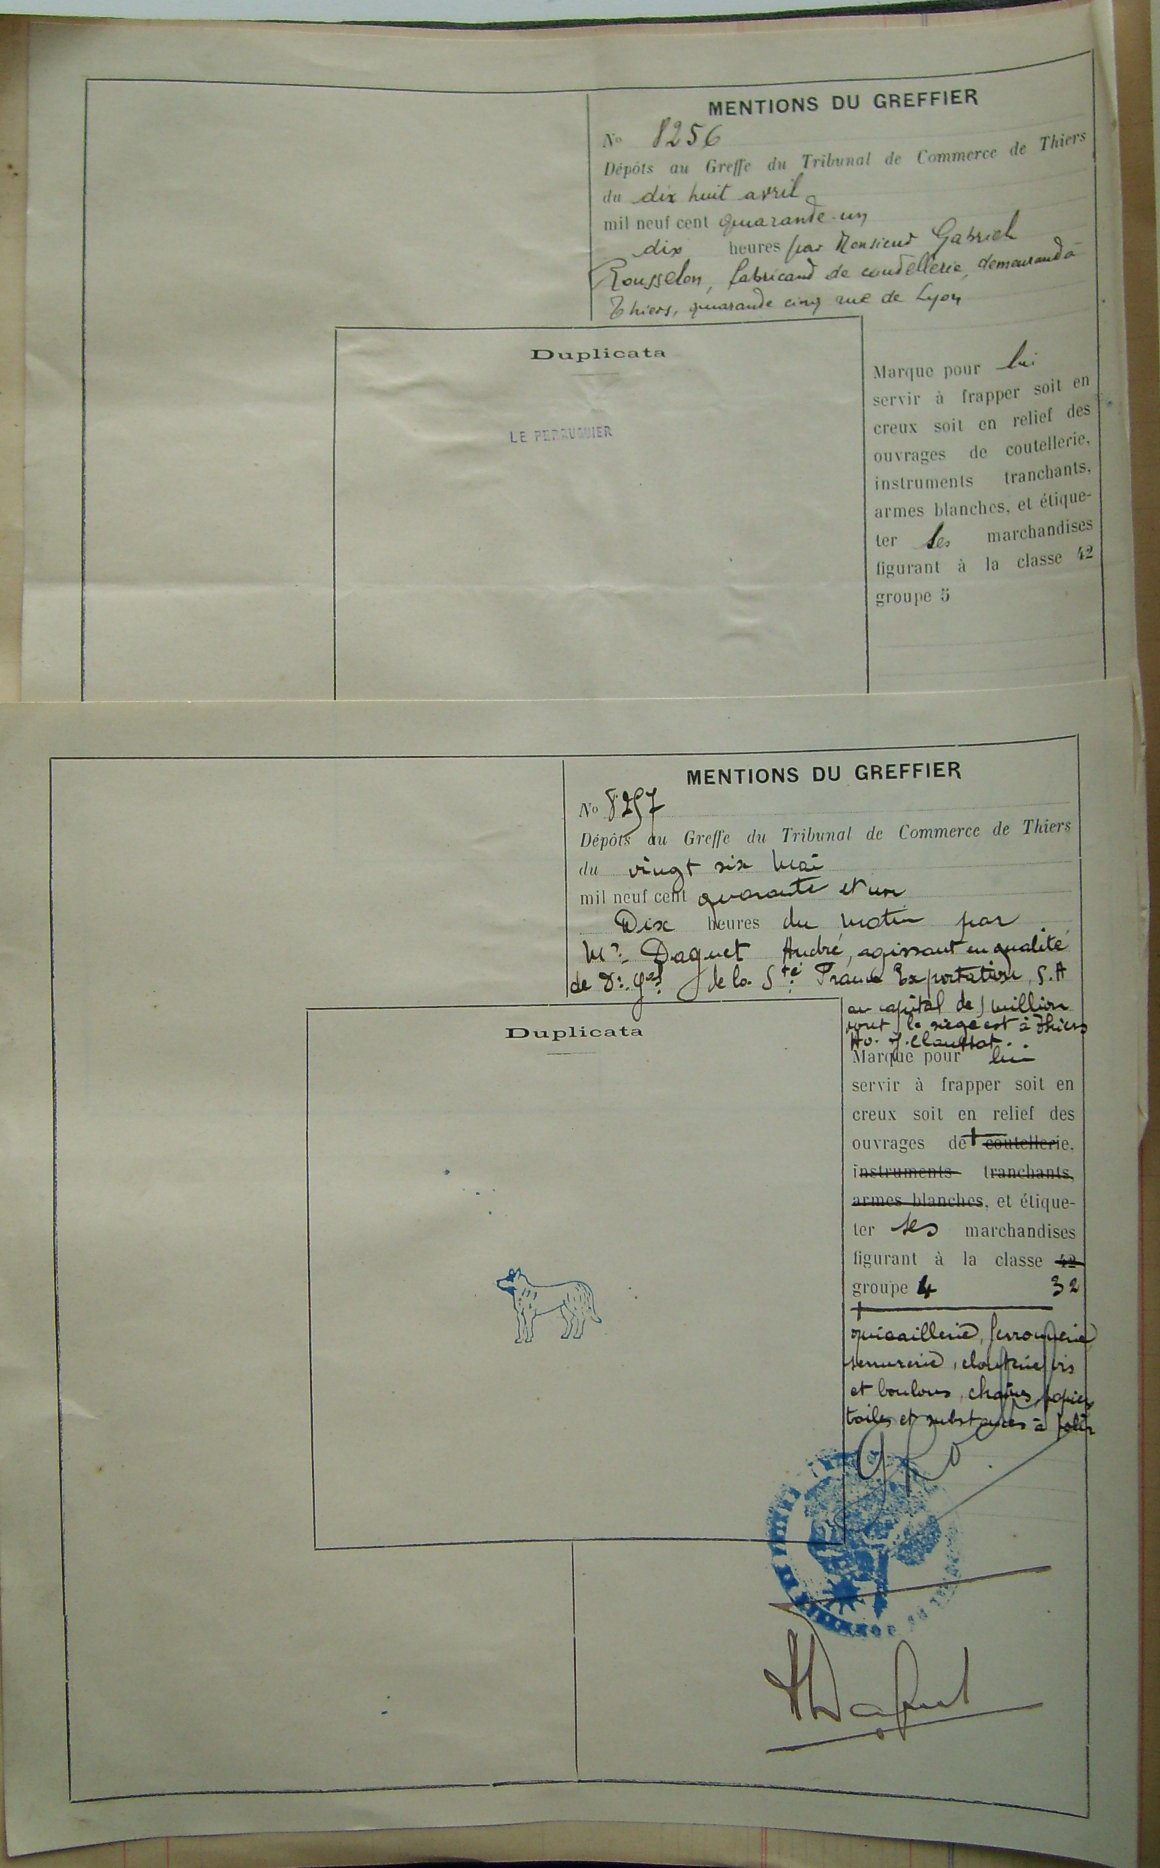 MENTIONS DU GREFFIER
No 8256
Dépôts au Greffe du Tribunal de Commerce de Thiers
du dix huit avril
mil neuf cent quarante-un
dix heures par Monsieur Gabriel
Rousselon, fabricant de coutellerie, demeurant à
Thiers, quarante cinq rue de Lyon
Duplicata
LE PERRUQUIER
Marque pour lui
servir à frapper soit en
creux soit en relief des
ouvrages de coutellerie,
instruments tranchants,
armes blanches, et étique-
ter ses marchandises
figurant à la classe 42
groupe 5
MENTIONS DU GREFFIER
No 8257
Dépôts au Greffe du Tribunal de Commerce de Thiers
du vingt six Mai
mil neuf cent quarante et un
Dix heures du matin par
Mr Daguet André, agissant en qualité
de Dr. gal de la Sté France Exportation, S.A
au capital de 1 million
dont le siège est à Thiers
Av. J. Claussat.
Marque pour lui
servir à frapper soit en
creux soit en relief des
ouvrages de + coutellerie,
instruments tranchants,
armes blanches, et étique-
ter ses marchandises
figurant à la classe 42
groupe 4 32
+ quicaillerie, ferronnerie
serrurerie, clouterie, vis
et boulons, chaînes, papiers
toiles et substances à polir
ADaguet